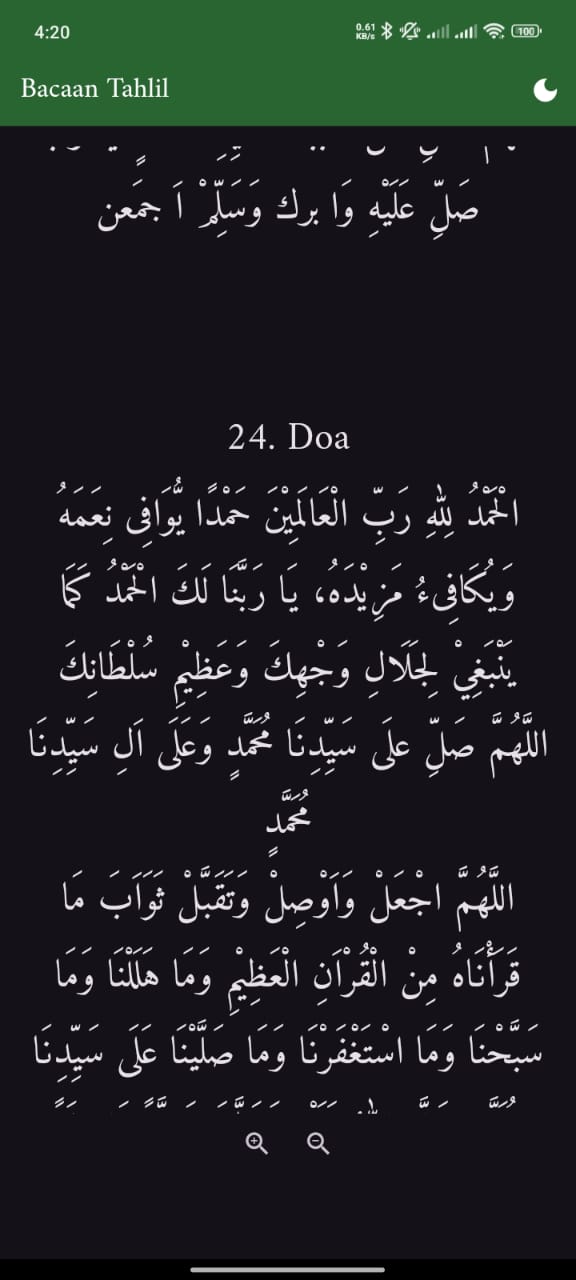 4:20
0.61 KB/s
100
Bacaan Tahlil
صَلِّ عَلَيْهِ وَا برك وَسَلِّمْ اَ جمَعن
24. Doa
الْحَمْدُ لِلهِ رَبِّ الْعَالَمِيْنَ حَمْدًا يُّوَافِى نِعَمَهُ
وَيُكَافِىءُ مَزِيْدَهُ، يَا رَبَّنَا لَكَ الْحَمْدُ كَمَا
يَنْبَغِيْ لِجَلَالِ وَجْهِكَ وَعَظِيْمِ سُلْطَانِكَ
اللَّهُمَّ صَلِّ عَلَى سَيِّدِنَا مُحَمَّدٍ وَعَلَى اَلِ سَيِّدِنَا
مُحَمَّدٍ
اللَّهُمَّ اجْعَلْ وَاَوْصِلْ وَتَقَبَّلْ ثَوَاَبَ مَا
قَرَأْنَاهُ مِنْ الْقُرْاَنِ الْعَظِيْمِ وَمَا هَلَلْنَا وَمَا
سَبَّحْنَا وَمَا اسْتَغْفَرْنَا وَمَا صَلَّيْنَا عَلَى سَيِّدِنَا